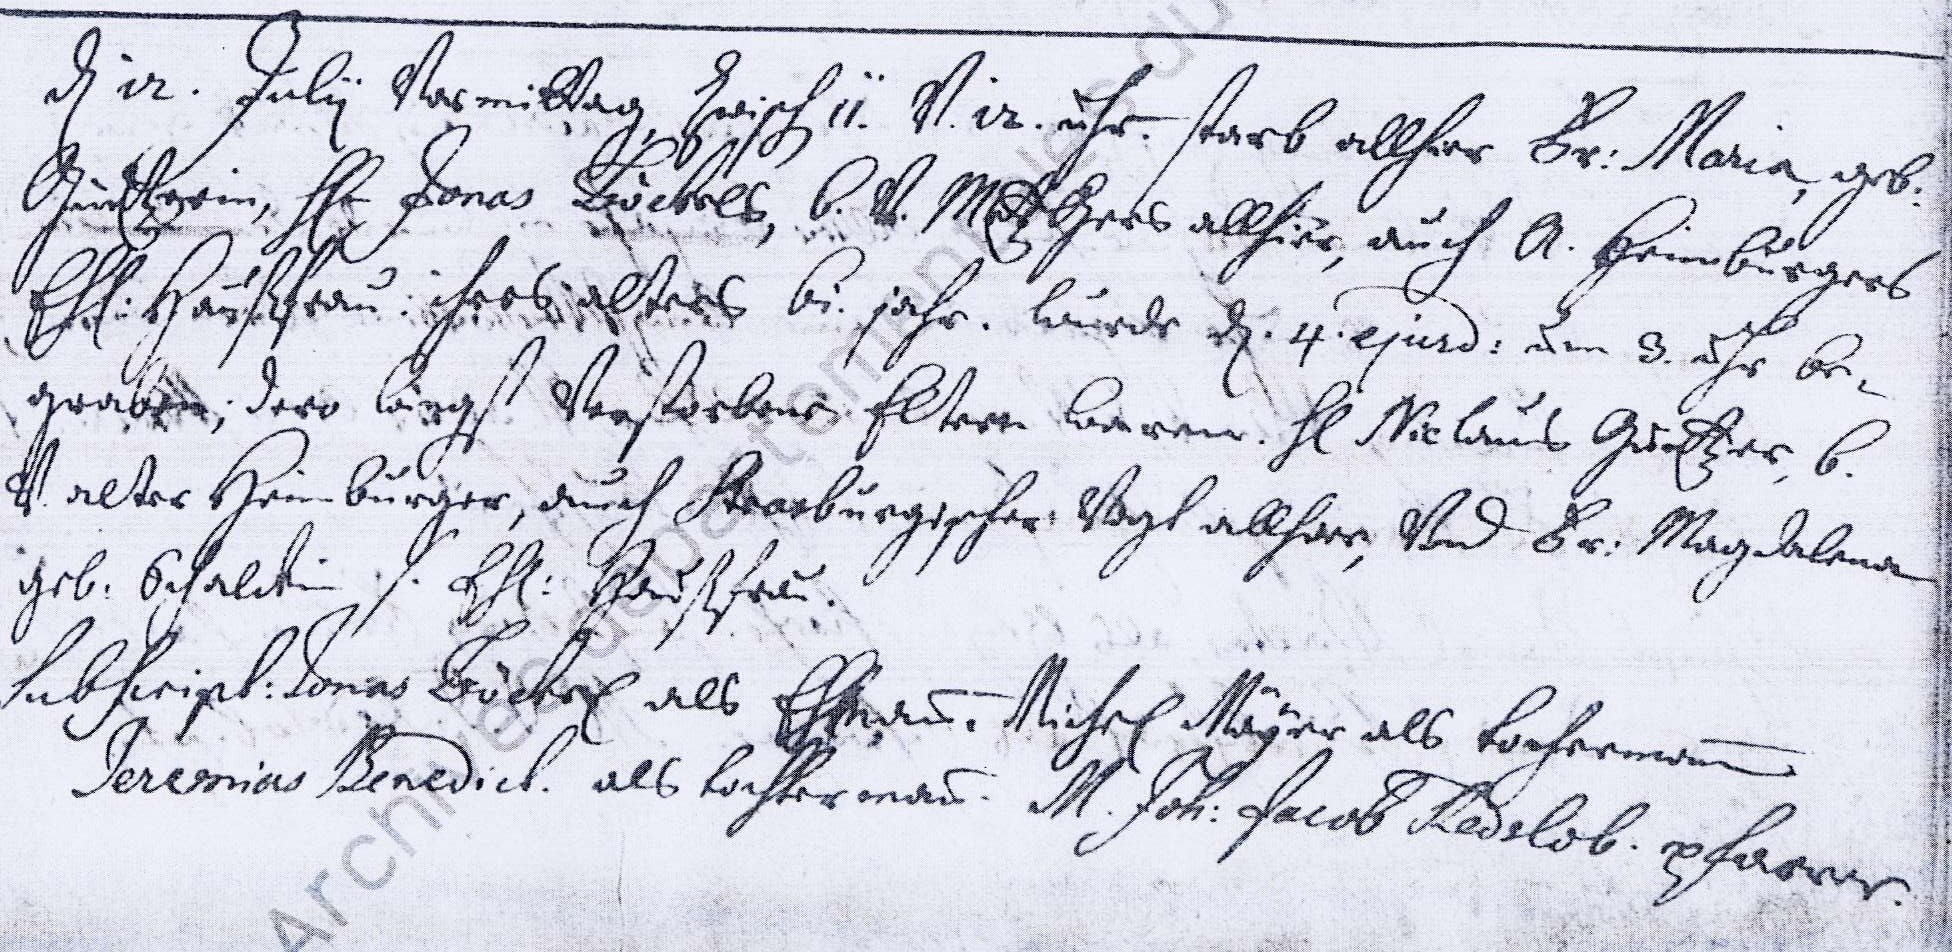 d. 12. Julij Vormittag, zwisch 11. V. 12. uhr. starb allhier Fr: Maria, geb.
Gürtzerin, Hr Jonas Böckels, b. V. Metzgers allhier, auch A. Heimbürgers
Ehl: Haußfrau: ihres alters 61. jahr. wurde d. 4. ejusd: um 3. uhr be-
graben; dero längst Verstorbene Eltern waren. H Niclaus Gürtzer, b.
V. alter Heimbürger, auch Strasburgischer Vogt allhier, Vnd Fr: Magdalena
geb: Schaldin s. Ehl: Haußfrau.
Subscript: Jonas Böckel als Ehman. Michel Mäyer als tochterman
Jeremias Benedict. als tochterman. M. Joh: Jacob Redslob. pfarrer.
Archives départementales du